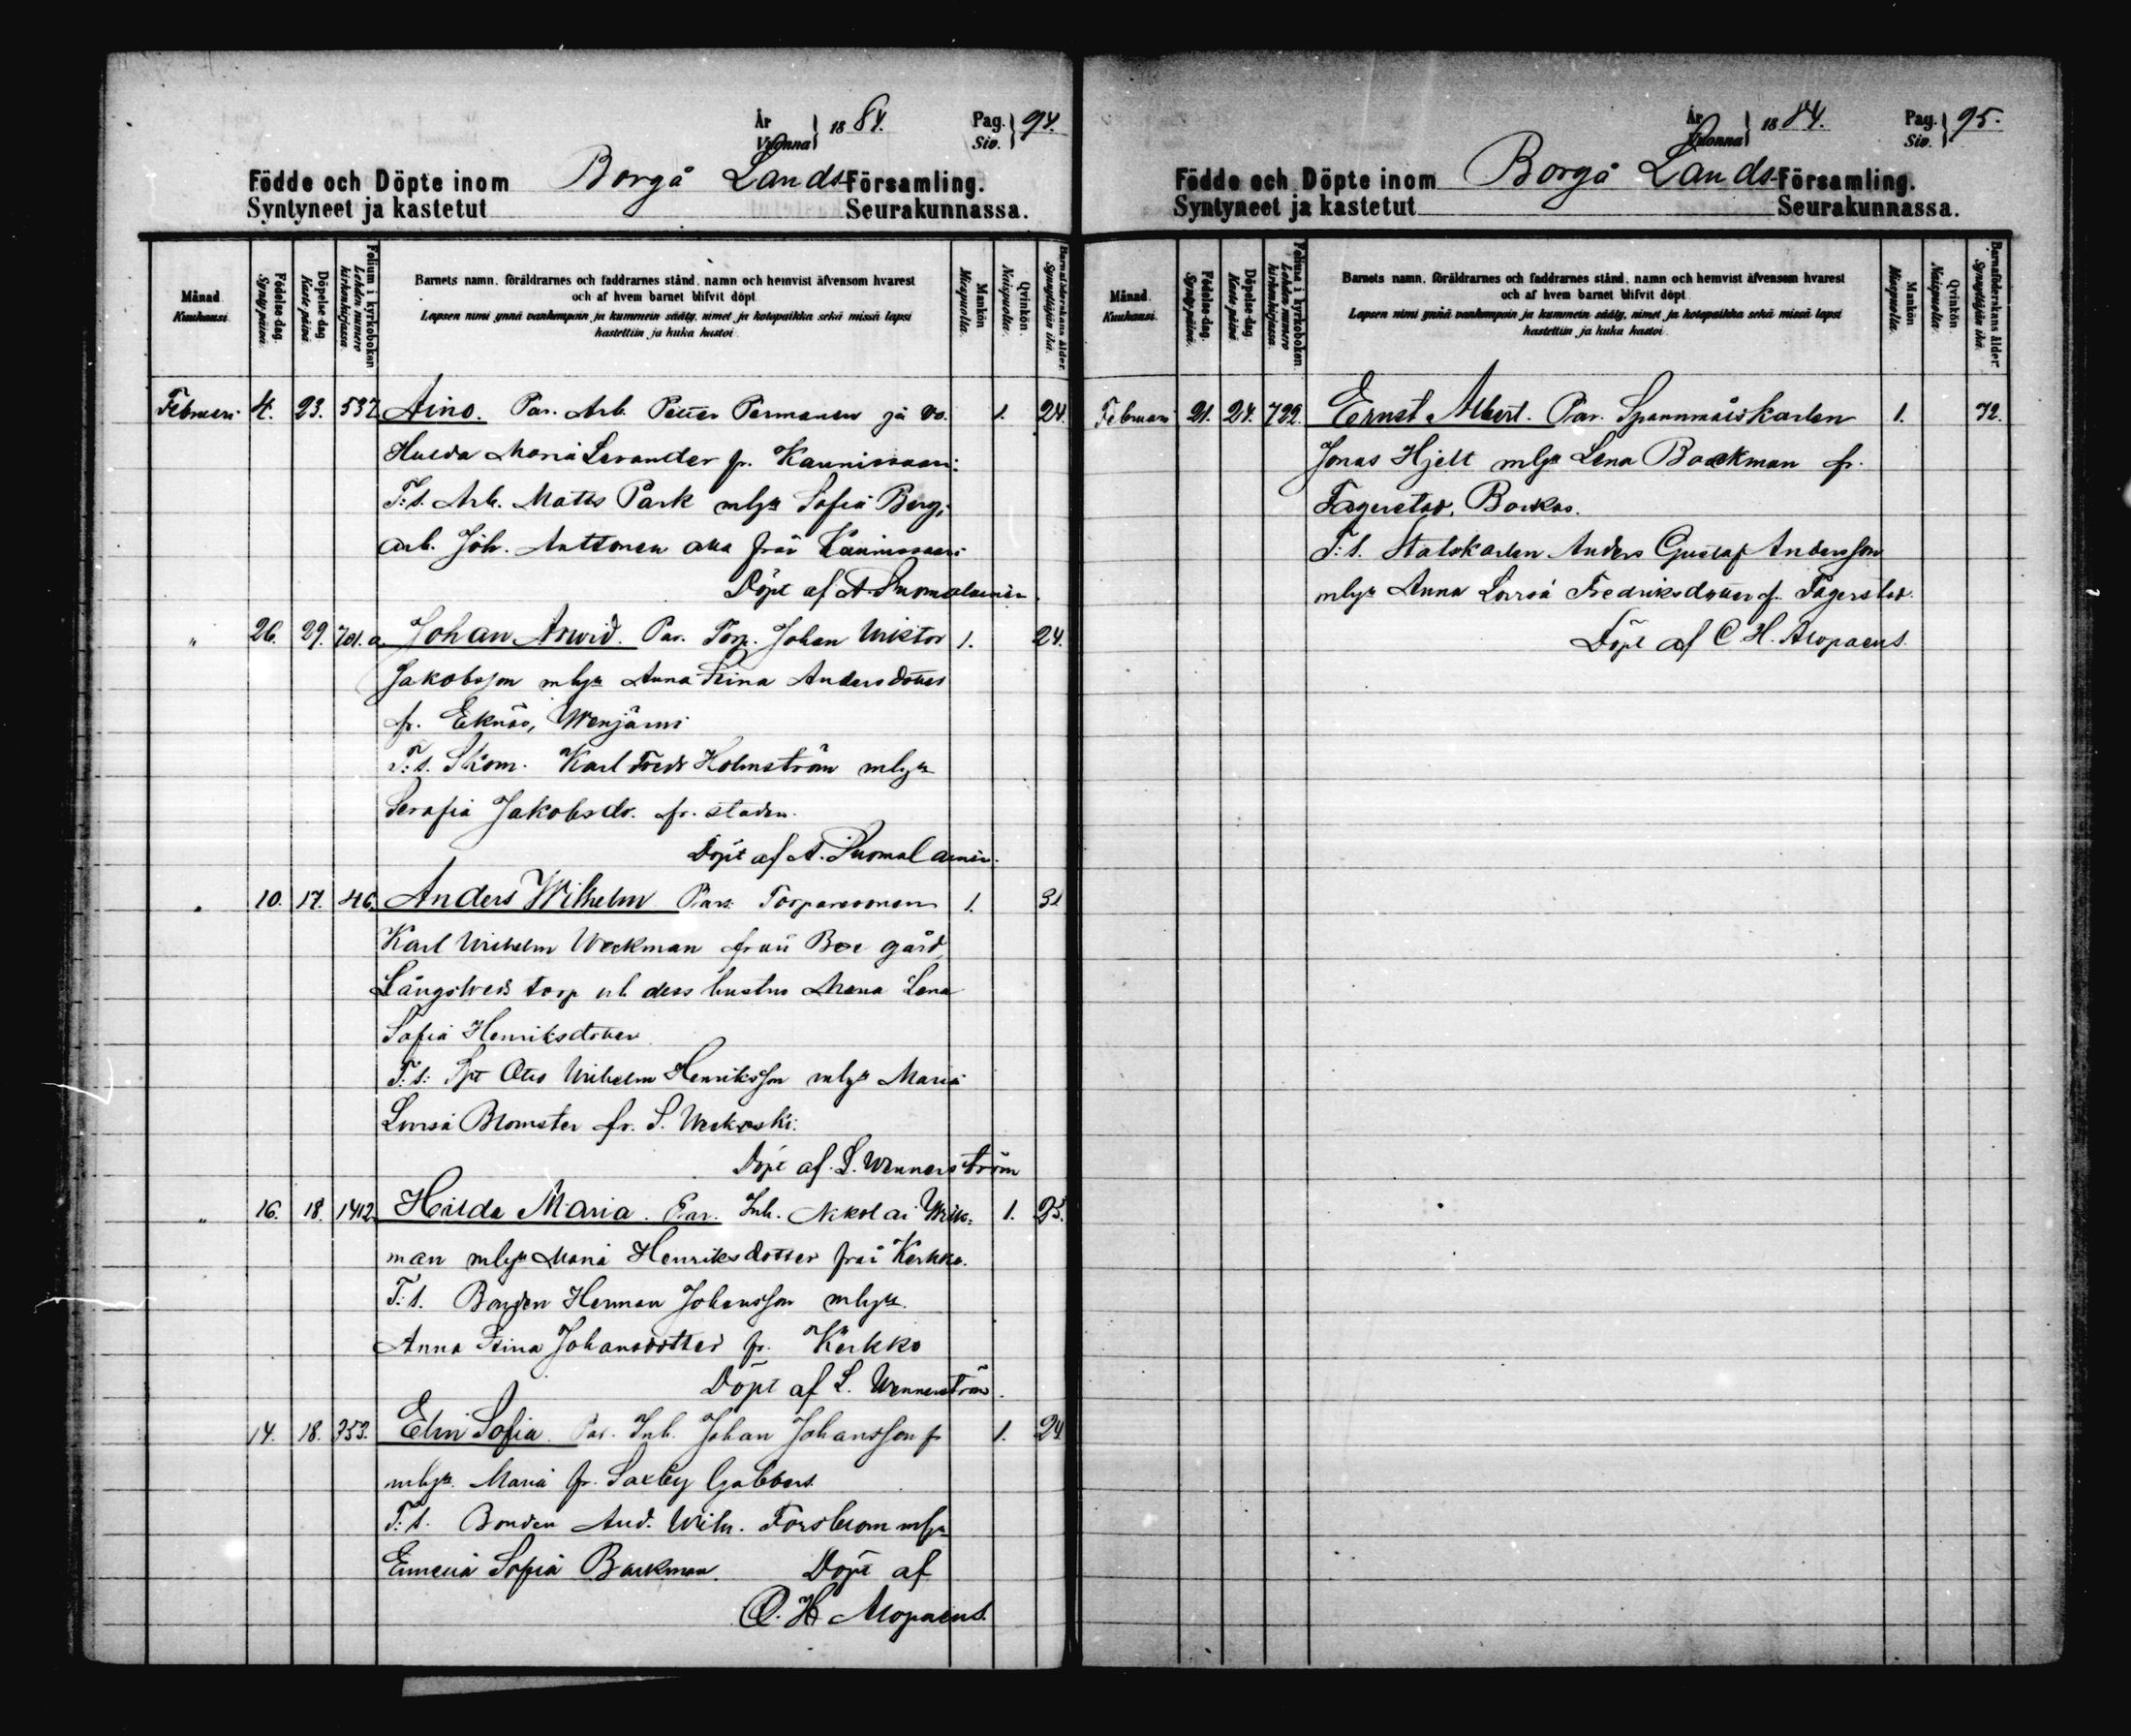 År Vuonna } 1884. Pag. Siv. } 94.
Födde och Döpte inom Borgå Lands Församling.
Syntyneet ja kastetut Seurakunnassa.
Månad. Kuukausi.
Födelse-dag. Syntypäivä.
Döpelse-dag. Kastepäivä.
Folium i kyrkoboken. Lehden numero kirkonkirjassa.
Barnets namn, föräldrarnes och faddrarnes stånd, namn och hemvist äfvensom hvarest
och af hvem barnet blifvit döpt.
Lapsen nimi ynnä vanhempain ja kummein sääty, nimet ja kotopaikka sekä missä lapsi
kastettiin ja kuka kastoi.
Mankön. Miespuolia.
Qvinkön. Naispuolia.
Barnaföderskans ålder. Synnyttäjän ikä.
Februari 4. 23. 532 Aino. Par. Arb. Petter Permanen 1. 24.
Hulda Maria Levander fr. Kaunissaari.
F:s. Arb. Matts Park mlgn Sofia Berg,
arb. Joh. Anttonen alla från Kaunissaari
Döpt af A. Suomalainen.
" 26. 29. 701.a. Johan Arwid. Par. Torp. Johan Wiktor 1. 24.
Jakobsson mlgn Anna Stina Andersdotter
fr. Eknäs, Wenjärvi
F:s. Skom. Karl Fredr Holmström mlgn
Serafia Jakobsdr. fr. staden.
Döpt af A. Suomalainen.
" 10. 17. 46. Anders Wilhelm Pars: Torparesonen 1. 31
Karl Wilhelm Weckman från Boe gård,
Långstreds torp o h dess hustru Maria Lena
Sofia Henriksdotter
F:s: Otto Wilhelm Henriksson mlgn Maria
Lovisa Blomster fr. S. Weckoski.
Döpt af L. Wennerström
" 16. 18. 1412. Hilda Maria. Par. Inh. Nikolai Weck-1. 25.
man mlgn Maria Henriksdotter från Kerkko.
F:s. Bonden Herman Johansson mlgn
Anna Stina Johansdotter fr. Kerkko
Döpt af L. Wennerström.
14. 18. 353. Elin Sofia. Par. Inh. Johan Johansson fr 1. 24
mlgn Maria fr. Saxby Gabbars.
F:s. Bonden And. Wilh. Forsblom mlgn
Emelia Sofia Backman. Döpt af
C. H. Alopaeus.
År Vuonna } 1884. Pag. Siv. } 95.
Födde och Döpte inom Borgå Lands Församling.
Syntyneet ja kastetut Seurakunnassa.
Månad. Kuukausi.
Födelse-dag. Syntypäivä.
Döpelse-dag. Kastepäivä.
Folium i kyrkoboken. Lehden numero kirkonkirjassa.
Barnets namn, föräldrarnes och faddrarnes stånd, namn och hemvist äfvensom hvarest
och af hvem barnet blifvit döpt.
Lapsen nimi ynnä vanhempain ja kummein sääty, nimet ja kotopaikka sekä missä lapsi
kastettiin ja kuka kastoi.
Mankön. Miespuolia.
Qvinkön. Naispuolia.
Barnaföderskans ålder. Synnyttäjän ikä.
Februari 21. 24. 722. Ernst Albert. Par. Spannmålskarlen 1.
Jonas Hjelt mlgn Lena Backman fr.
Fagerstad, Backas.
F:s. Statskarlen Anders Gustaf Andersson
mlgn Anna Lovisa Fredriksdotter fr. Fagerstad.
Döpt af C. H. Alopaeus.